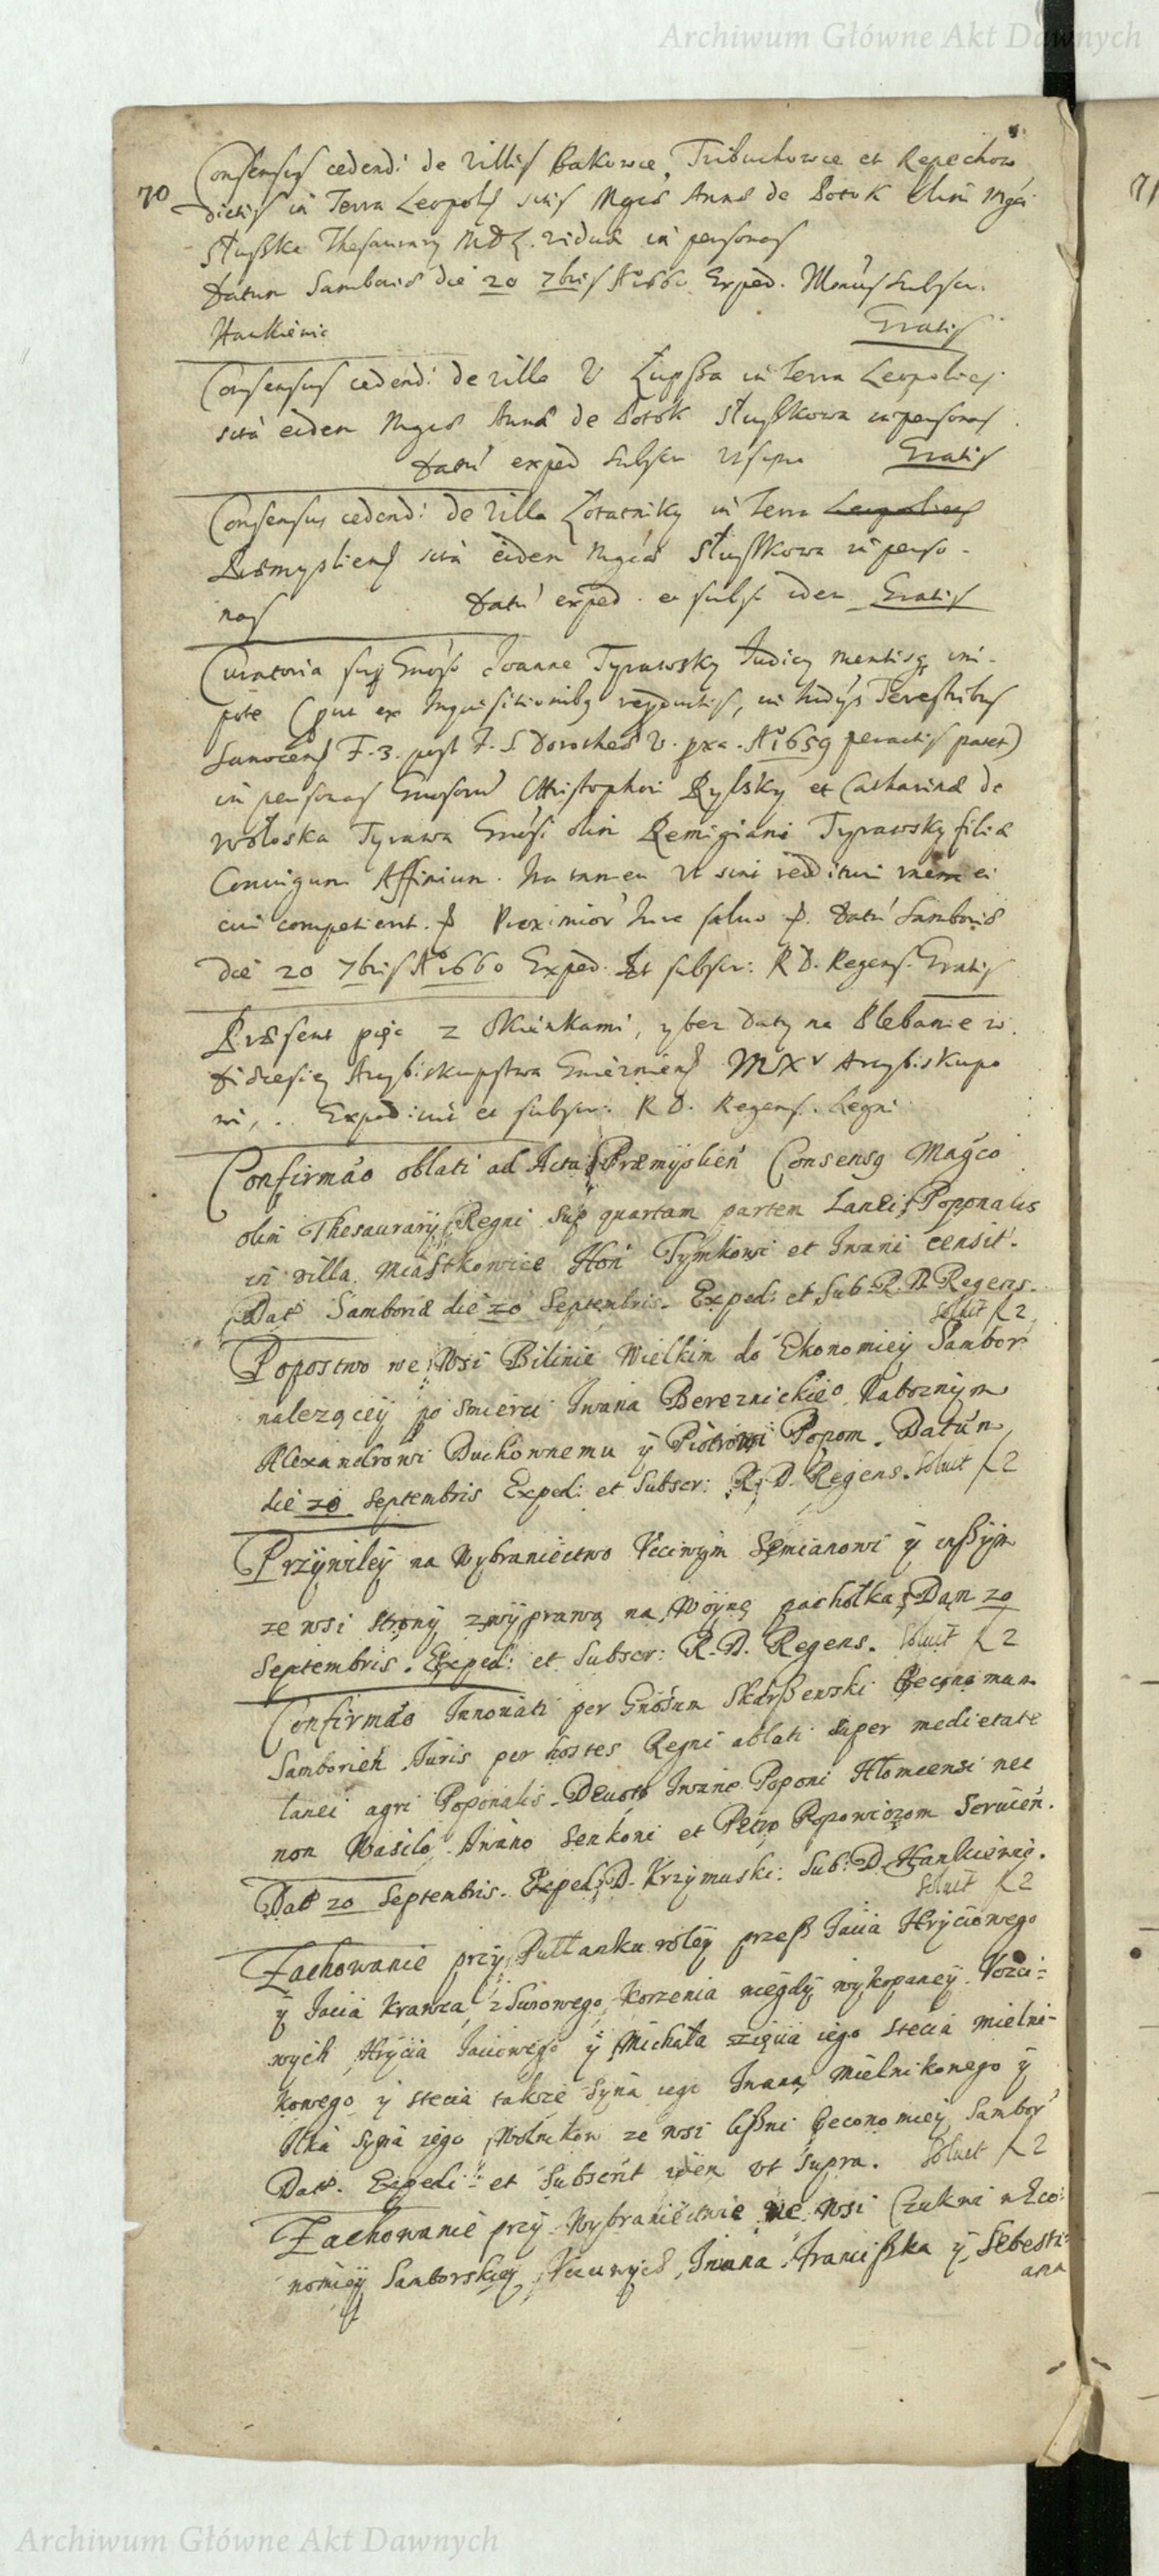 Archiwum Główne Akt Dawnych
70
Consensus cedendi de Villis Bakowce, Tribuchowce et Repechow
dictis in Terra Leopoli sitis Mgcæ Annæ de Potok Olim Mgci
Słuszka Thesaurarij MDL. vidua in personas
Datum Samboriæ die 20 7bris Ao 1660 Exped. subscr.
Hankiewic Gratis
Consensus cedendi de Villa in Terra Leopolien
sita eidem Mgcæ Annæ de Potok Słuszkowa in personas
Datū exped subscr ut supra Gratis
Consensus cedendi de Villa Zotatniky in Terra Leopolien
Præmyslien sita eidem Mgcæ Słuszkowa in perso-
nas Datū exped. et subsc idem Gratis
Curatoria sup Gnōso Joanne Tyrawsky Judicy mentisq im-
pote (put ex Inquisitionibq reproductis, in Judijs Terestribus
Sanocens F. 3. post F. S. Dorotheæ V. pxa. Ao 1659 peractis patet)
in personas Gnosorū Christophori Rylsky et Catharinæ de
Wołoska Tyrawa Gnōsi olim Remigiani Tyrawsky filiæ
Coniugum Affinium. Ita tamen ut sint reddituri ei
cui competierit. Proximior Iure saluo Datū Samboriæ
die 20 7bris Ao 1660 Exped. Et subscr: R D. Regens. Gratis
Præsent pięc z Okienkami, y bez daty na Plebanie w
Diæcesiey Arcybiskupstwa Gniezniens Arcybiskupo
wi, . . Expedivit et subscr: R D. Regens. Regni
Confirmāo oblati ad Acta Præmyslień Consensq Magco
olim Thesaurarij Regni sup quartam partem Lanei Poponalis
in villa Miastkowice Hon Tymkowi et Iwani censit.
Dat Samboriæ die 20 Septembris. Exped: et Sub: R. D. Regens.
soluit f 2
Popostwo we Wsi Bilinie Wielkim do Ekonomiey Sambor
nalezącey po smierci Iwana Bereznickieo Naboznym
Alexandrowi Duchownemu ÿ Piotrowi Popom. Datūn
die 20 Septembris Exped: et Subscr: R. D. Regens. soluit f 2
Przÿwileÿ na Wybraniectwo Vcciwym Semianowi ÿ inszÿm
ze wsi Strony zwÿprawą na Woynę pachołka Dan 20
Septembris. Exped: et Subscr: R. D. Regens. soluit f 2
Confirmāo Innouati per Gnosum Skarszewski Œconomum
Samborień Iuris per hostes Regni ablati super medietate
lanei agri Poponalis Deuoto Iwane Poponi Hłomcensi nec
non Wasilo Iwano Senkoni et Petro Popowiczom Seruień.
Dat 20 Septembris. Exped: D. Krzymuski: Sub: D. Hankiewic.
soluit f 2
Zachowanie przy Pułłanku roleÿ przesz Iacia Hryciowego
ÿ Iacia Krawca, z Surowego Korzenia niegdÿ wÿkopaneÿ Vcci=
wych Hrÿcia Iaciowego ÿ Michała zięcia iego Stecia mielni-
kowego ÿ Stecia takze Syna iego Iwana Mielnikowego ÿ
Ilka Syna iego Wolnikow ze wsi Œconomiey Sambor
Dat. Expedi: et Subscrit idem vt Supra. soluit f 2
Zachowanie przÿ Wybraniectwie we Wsi Czukwi w Eco:
nomieÿ Samborskieÿ Vcciwych Iwana Franciszka ÿ Sebesti:
ana
Archiwum Główne Akt Dawnych